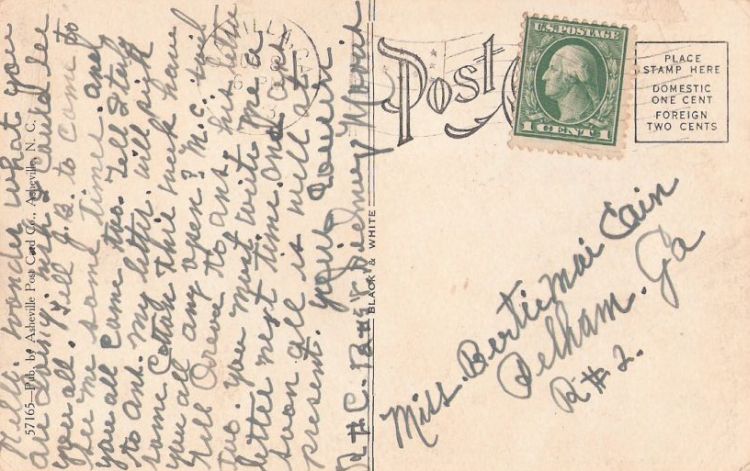 Hello. wonder what you
are doing. wish I could see
you all. Tell J.B. to come to
see me some times. and
you all come two. Tell
to ans. my letter. will pick
some Cotton this week have
you all any open? M.C. said
Tell to ans his letter
Two. you must write me a
letter next time. and
soon all is well at
present. your cousin
Sidney
57165—Pub. by Asheville Post Card Co., Asheville, N. C.
BLACK & WHITE
Post
U.S. POSTAGE
1 CENT 1
PLACE
STAMP HERE
DOMESTIC
ONE CENT
FOREIGN
TWO CENTS
Miss. Bertiemai Cain
Pelham. Ga
R#2.